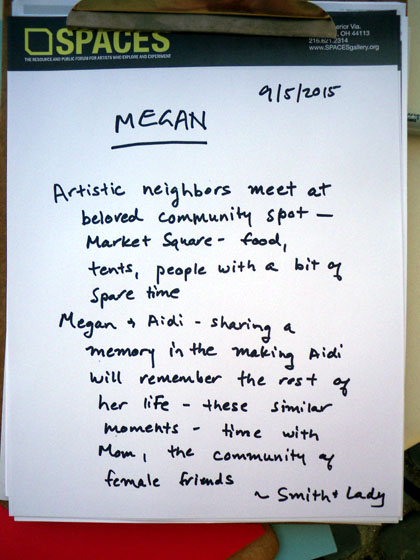 SPACES
THE RESOURCE AND PUBLIC FORUM FOR ARTISTS WHO EXPLORE AND EXPERIMENT
Via.
OH 44113
216.621.2314
www.SPACESgallery.org
9/5/2015
MEGAN
Artistic neighbors meet at
beloved community spot —
Market Square - food,
tents, people with a bit of
spare time
Megan + Aidi - sharing a
memory in the making Aidi
will remember the rest of
her life - these similar
moments - time with
Mom, the community of
female friends
~ Smith + Lady